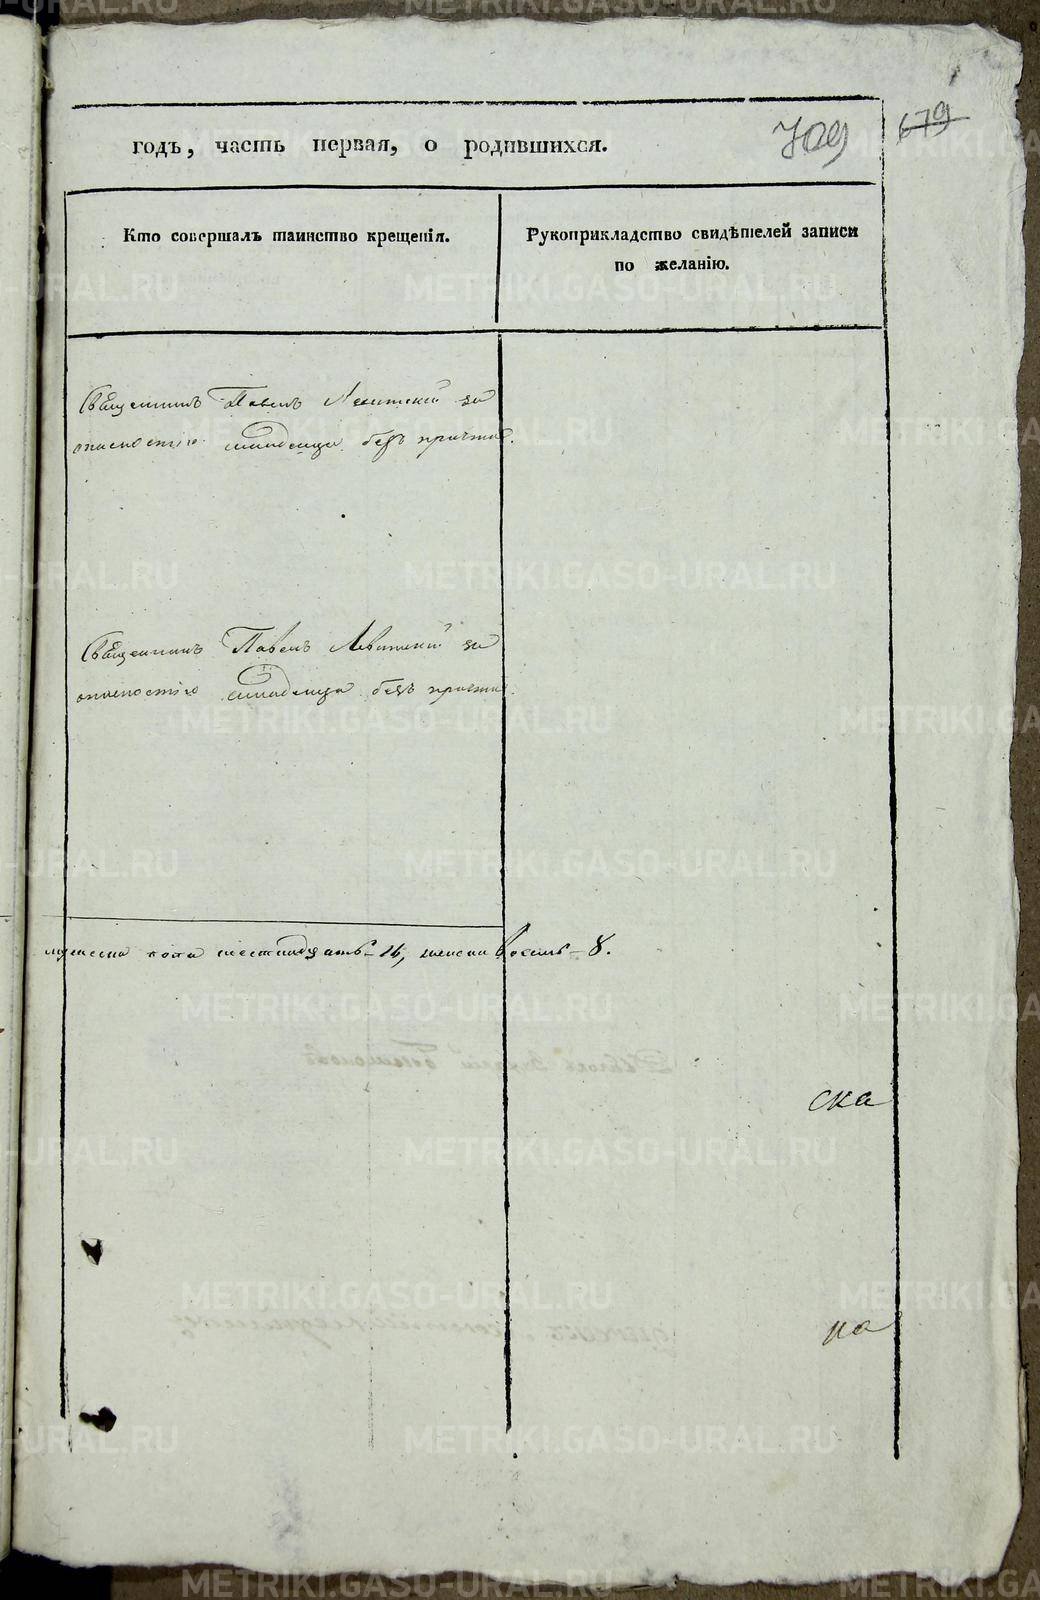 годъ, часть первая, о родившихся.
709
679
Кто совершалъ таинство крещенія.
Рукоприкладство свидѣтелей записи
по желанію.
Священникъ Павелъ Левитский за
опасностію младенца безъ причта.
Священникъ Павелъ Левитский за
опасностію младенца безъ причта.
мужеска пола шестнадцать - 16, женска восемь - 8.
ска
на
METRIKI.GASO-URAL.RU